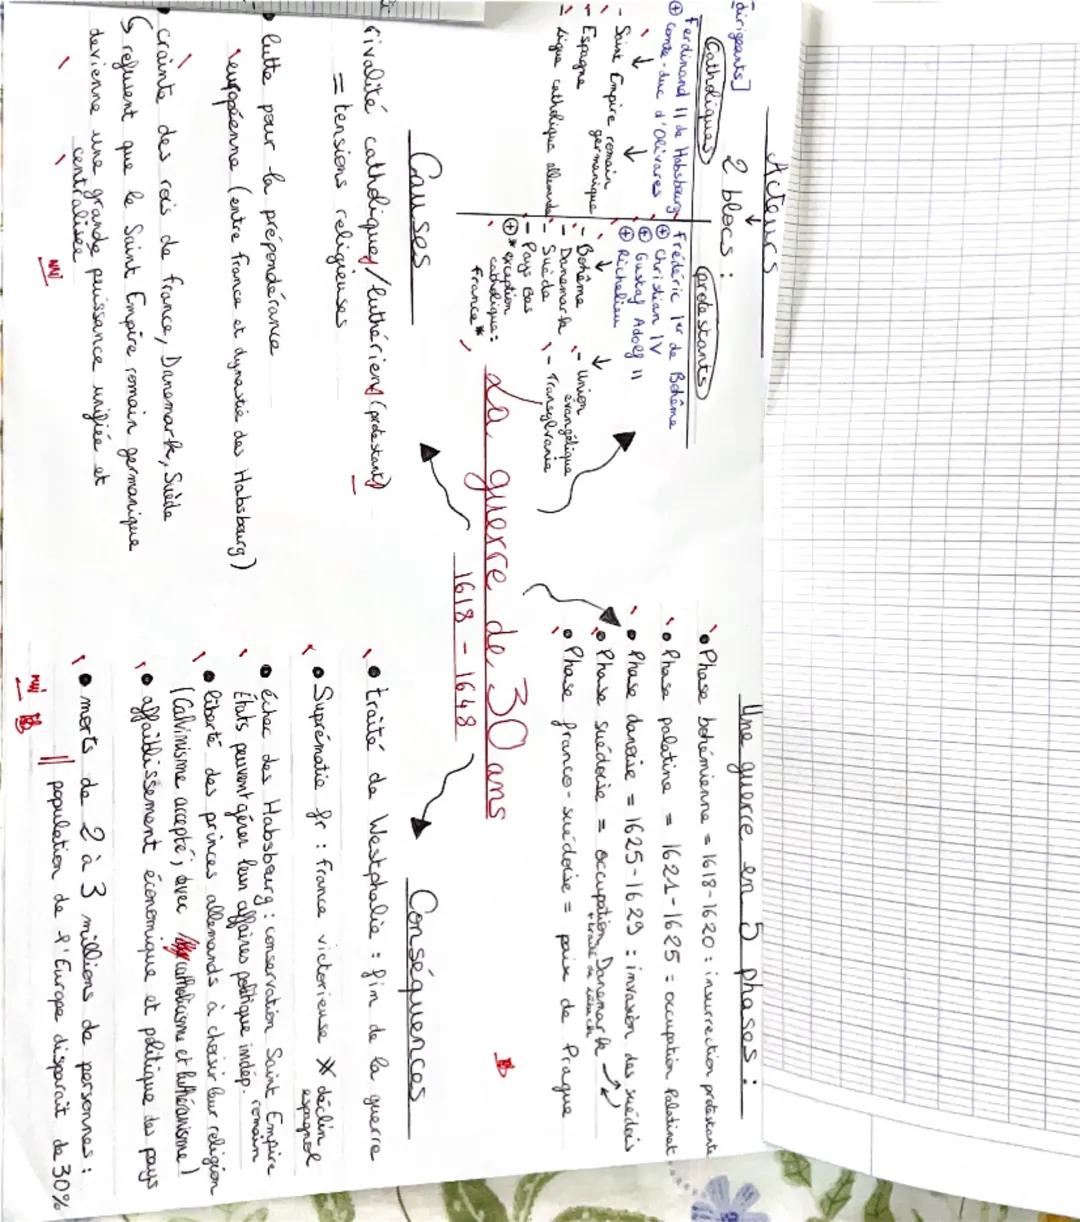 La guerre de 30 ans
1618 - 1648
Acteurs
2 blocs :
[dirigeants]
Catholiques
Ferdinand II de Habsbourg
⊕ comte-duc d'Olivares
- Saint Empire romain
germanique
- Espagne
- Ligue catholique allemande
protestants
Frédéric 1er de Bohême
⊕ Christian IV
⊕ Gustaf Adolf II
⊕ Richelieu
- Bohême
- Danemark
- Suède
- Pays Bas
⊕ * exception
catholique :
France *
- Union
évangélique
- Transylvanie
Une guerre en 5 phases :
• Phase bohémienne = 1618-1620 : insurrection protestante
• Phase palatine = 1621-1625 = occupation Palatinat
• Phase danoise = 1625-1629 : invasion des suédois
• Phase suédoise = occupation Danemark
• Phase franco-suédoise = paix de Prague
Causes
rivalité catholiques/luthériens (protestants)
= tensions religieuses
• lutte pour la prépondérance
européenne (entre France et dynastie des Habsbourg)
• crainte des rois de France, Danemark, Suède
↳ refusent que le Saint Empire romain germanique
devienne une grande puissance unifiée et
centralisée
Conséquences
• traité de Westphalie : fin de la guerre
• Suprématie fr : France victorieuse ※ déclin
espagnol
• échec des Habsbourg : conservation Saint Empire
romain
États peuvent gérer leur affaires politique indép.
• liberté des princes allemands à choisir leur religion
(Calvinisme accepté ; avec catholicisme et luthéranisme)
• affaiblissement économique et politique des pays
• morts de 2 à 3 millions de personnes :
|| population de l'Europe disparait de 30%